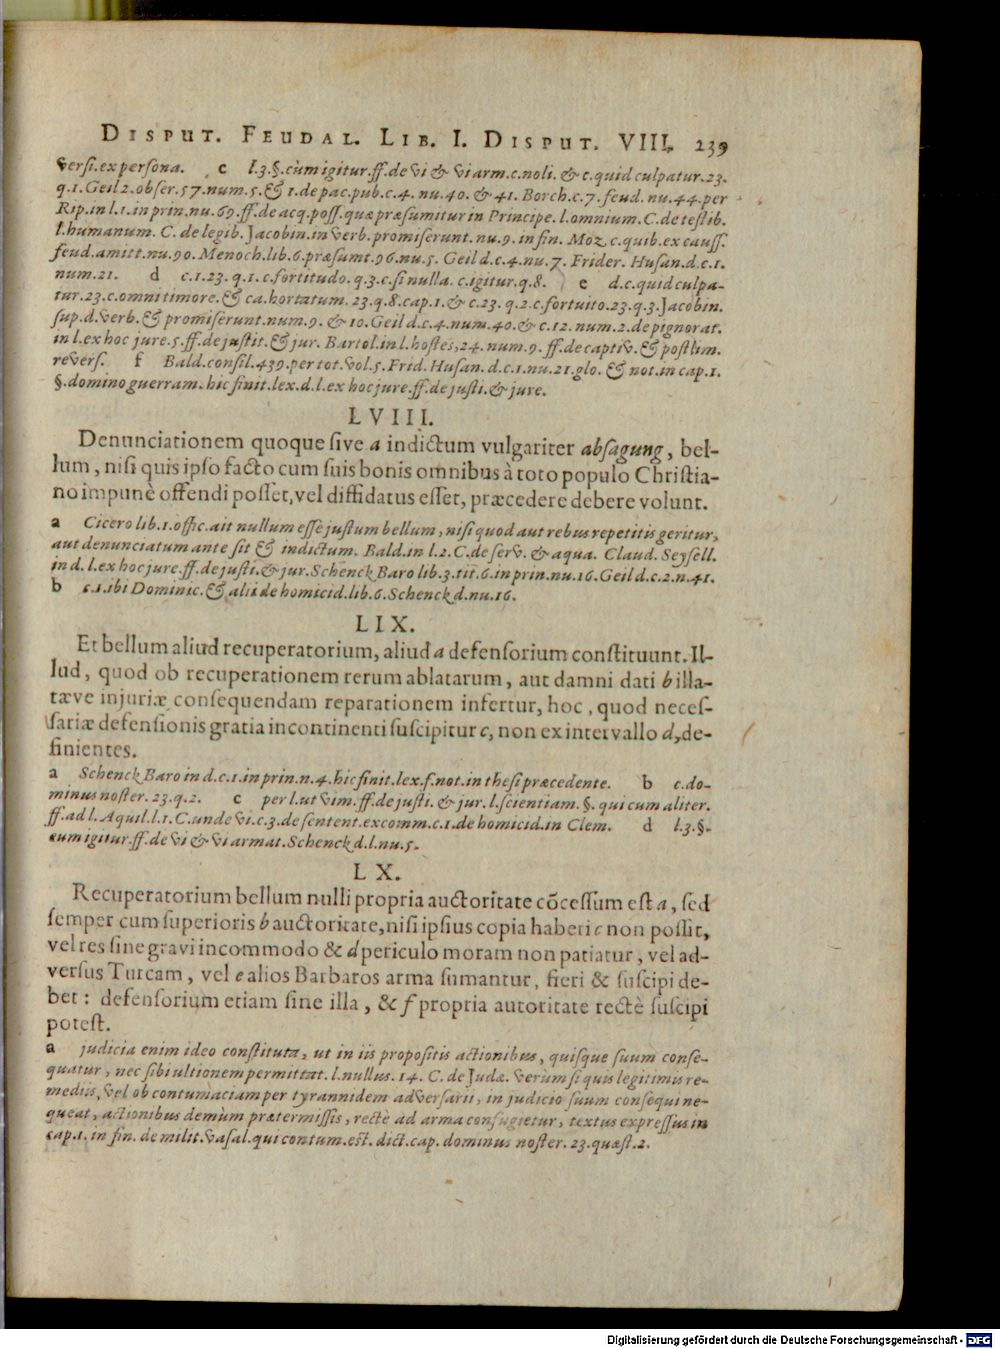 DISPUT. FEUDAL. LIB. I. DISPUT. VIII. 239
versi.ex persona. c l.3.§.cùm igitur.ff.de vi & vi arm.c.noli.& c.quid culpatur.23.
q.1.Geil 2.obser.57.num.5.& 1.de pac.pub.c.4. nu.40. & 41. Borch.c.7.feud. nu.44.per
Rip.in l.1.in prin.nu.69.ff.de acq.poss.quæ præsumitur in Principe.l.omnium.C.de testib.
l.humanum. C. de legib. Jacobin.in verb.promiserunt.nu.9.in fin. Moz.c.quib.ex causs.
feud.amitt.nu.90.Menoch.lib.6.præsumt.96.nu.5. Geil d.c.4.nu.7. Frider. Husan.d.c.1.
num.21. d c.1.23. q.1.c.fortitudo.q.3.c.si nulla. c.igitur.q.8. e d.c.quid culpa-
tur.23.c.omni timore.& ca.hortatum. 23.q.8.cap.1.& c.23. q.2.c.fortuito.23.q.3.Jacobin.
sup.d.verb.& promiserunt.num.9. & 10.Geil d.c.4.num.40.& c.12. num.2.de pignorat.
in l.ex hoc jure.5.ff.de justit.& jur. Bartol.in l.hostes,24.num.9.ff.de captiv.& postlim.
revers. f Bald.consil.439.per tot.vol.5.Frid.Husan.d.c.1.nu.21.glo.& not.in cap.1.
§.domino guerram.hic finit.lex.d.l.ex hoc jure.ff.de justi.& jure.
LVIII.
Denunciationem quoque sive a indictum vulgariter absagung, bel-
lum, nisi quis ipso facto cum suis bonis omnibus à toto populo Christia-
no impunè offendi posset, vel diffidatus esset, præcedere debere volunt.
a Cicero lib.1.offic.ait nullum esse justum bellum, nisi quod aut rebus repetitis geritur,
aut denunciatum ante sit & indictum. Bald.in l.2.C.de serv. & aqua. Claud. Seyssell.
in d.l.ex hoc jure.ff.de justi.& jur.Schenck Baro lib.3.tit.6.in prin.nu.16.Geil d.c.2.n.41.
b c.1.ibi Dominic.& alii de homicid.lib.6.Schenck d.nu.16.
LIX.
Et bellum aliud recuperatorium, aliud a defensorium constituunt. Il-
lud, quod ob recuperationem rerum ablatarum, aut damni dati b illa-
tæve injuriæ consequendam reparationem infertur, hoc, quod neces-
sariæ defensionis gratia incontinenti suscipitur c, non ex intervallo d, de-
finientes.
a Schenck Baro in d.c.1.in prin.n.4.hic finit.lex.f.not.in thesi præcedente. b c.do-
minus noster. 23.q.2. c per l.ut vim.ff.de justi. & jur. l.scientiam.§. qui cum aliter.
ff.ad l. Aquil.l.1.C.unde vi.c.3.de sentent.excomm.c.1.de homicid.in Clem. d l.3.§.
cum igitur.ff.de vi & vi armat.Schenck d.l.nu.5.
LX.
Recuperatorium bellum nulli propria auctoritate cõcessum est a, sed
semper cum superioris b auctoritate, nisi ipsius copia haberi c non possit,
vel res sine gravi incommodo & d periculo moram non patiatur, vel ad-
versus Turcam, vel e alios Barbaros arma sumantur, fieri & suscipi de-
bet: defensorium etiam sine illa, & f propria autoritate rectè suscipi
potest.
a judicia enim ideo constituta, ut in iis propositis actionibus, quisque suum conse-
quatur, nec sibi ultionem permittat. l.nullus. 14. C. de Judæ. verùm si quis legitimis re-
mediis, vel ob contumaciam per tyrannidem adversarii, in judicio suum consequi ne-
queat, actionibus demùm prætermissis, rectè ad arma confugietur, textus expressus in
cap.1. in fin. de milit.vasal.qui contum.est. dict.cap. dominus noster. 23.quæst.2.
Digitalisierung gefördert durch die Deutsche Forschungsgemeinschaft - DFG